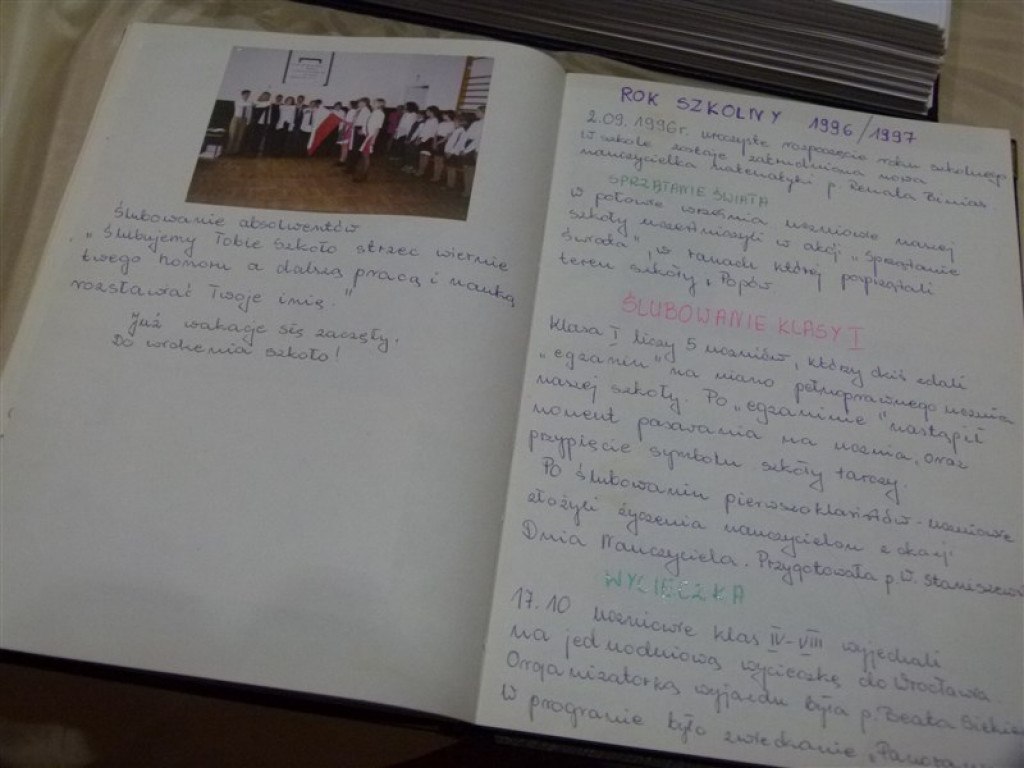 Ślubowanie absolwentów
„Ślubujemy Tobie Szkoło strzec wiernie
twego honoru a dalszą pracą i nauką
rozsławać Twoje imię."
Już wakacje się zaczęły,
Do widzenia szkoło!
ROK SZKOLNY 1996/1997
2.09.1996r. uroczyste rozpoczęcie roku szkolnego
W szkole zostaje zatrudniona nowa
nauczycielka matematyki p. Renata
SPRZĄTANIE ŚWIATA
W połowie września uczniowie naszej
szkoły uczestniczyli w akcji „Sprzątanie
Świata", w ramach której posprzątali
teren szkoły i Popów
ŚLUBOWANIE KLASY I
Klasa I liczy 5 uczniów, którzy dziś zdali
„egzamin" na miano pełnoprawnego ucznia
naszej szkoły. Po „egzaminie" nastąpił
moment pasowania na ucznia, oraz
przypięcie symbolu szkoły tarczy.
Po ślubowaniu pierwszoklasistów - uczniowie
złożyli życzenia nauczycielom z okazji
Dnia Nauczyciela. Przygotowała p. W.
WYCIECZKA
17.10 uczniowie klas IV-VIII wyjechali
na jednodniową wycieczkę do Wrocławia.
Organizatorką wyjazdu była p. Beata
W programie było zwiedzanie